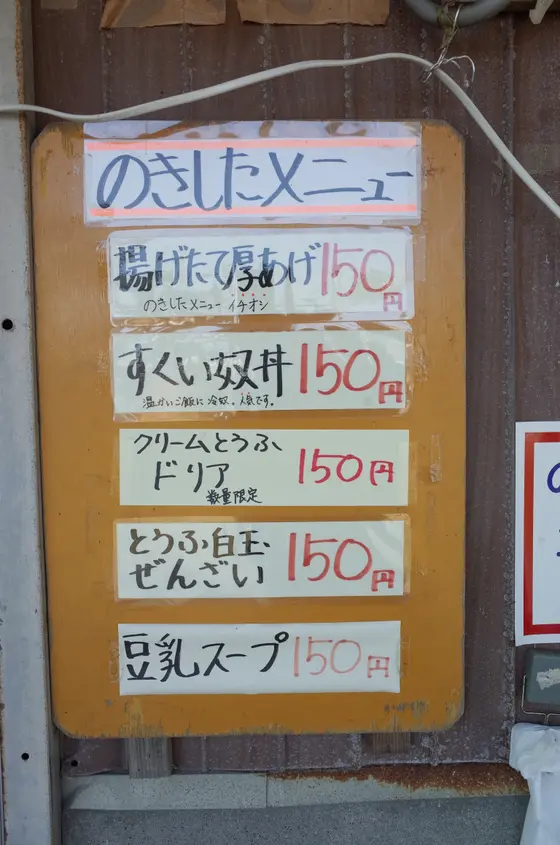 のきしたメニュー
揚げたて厚あげ150円
のきしたメニュー イチオシ
すくい奴丼150円
温かいご飯に冷奴。人気です。
クリームとうふ
ドリア 150円
数量限定
とうふ白玉
ぜんざい 150円
豆乳スープ150円